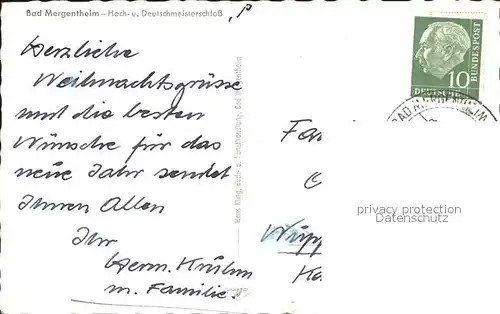 Bad Mergentheim – Hoch- u. Deutschmeisterschloß
Herzliche
Weihnachtsgrüsse
und die besten
Wünsche für das
neue Jahr sendet
Ihnen Allen
Ihr
Herm. Krühm
m. Familie.
Hans Kling, Buch- u. Kunsthandlung, Bad Mergentheim
10
DEUTSCHE
BUNDESPOST
BAD MERGENTHEIM
Fa
Wupp
privacy protection
Datenschutz